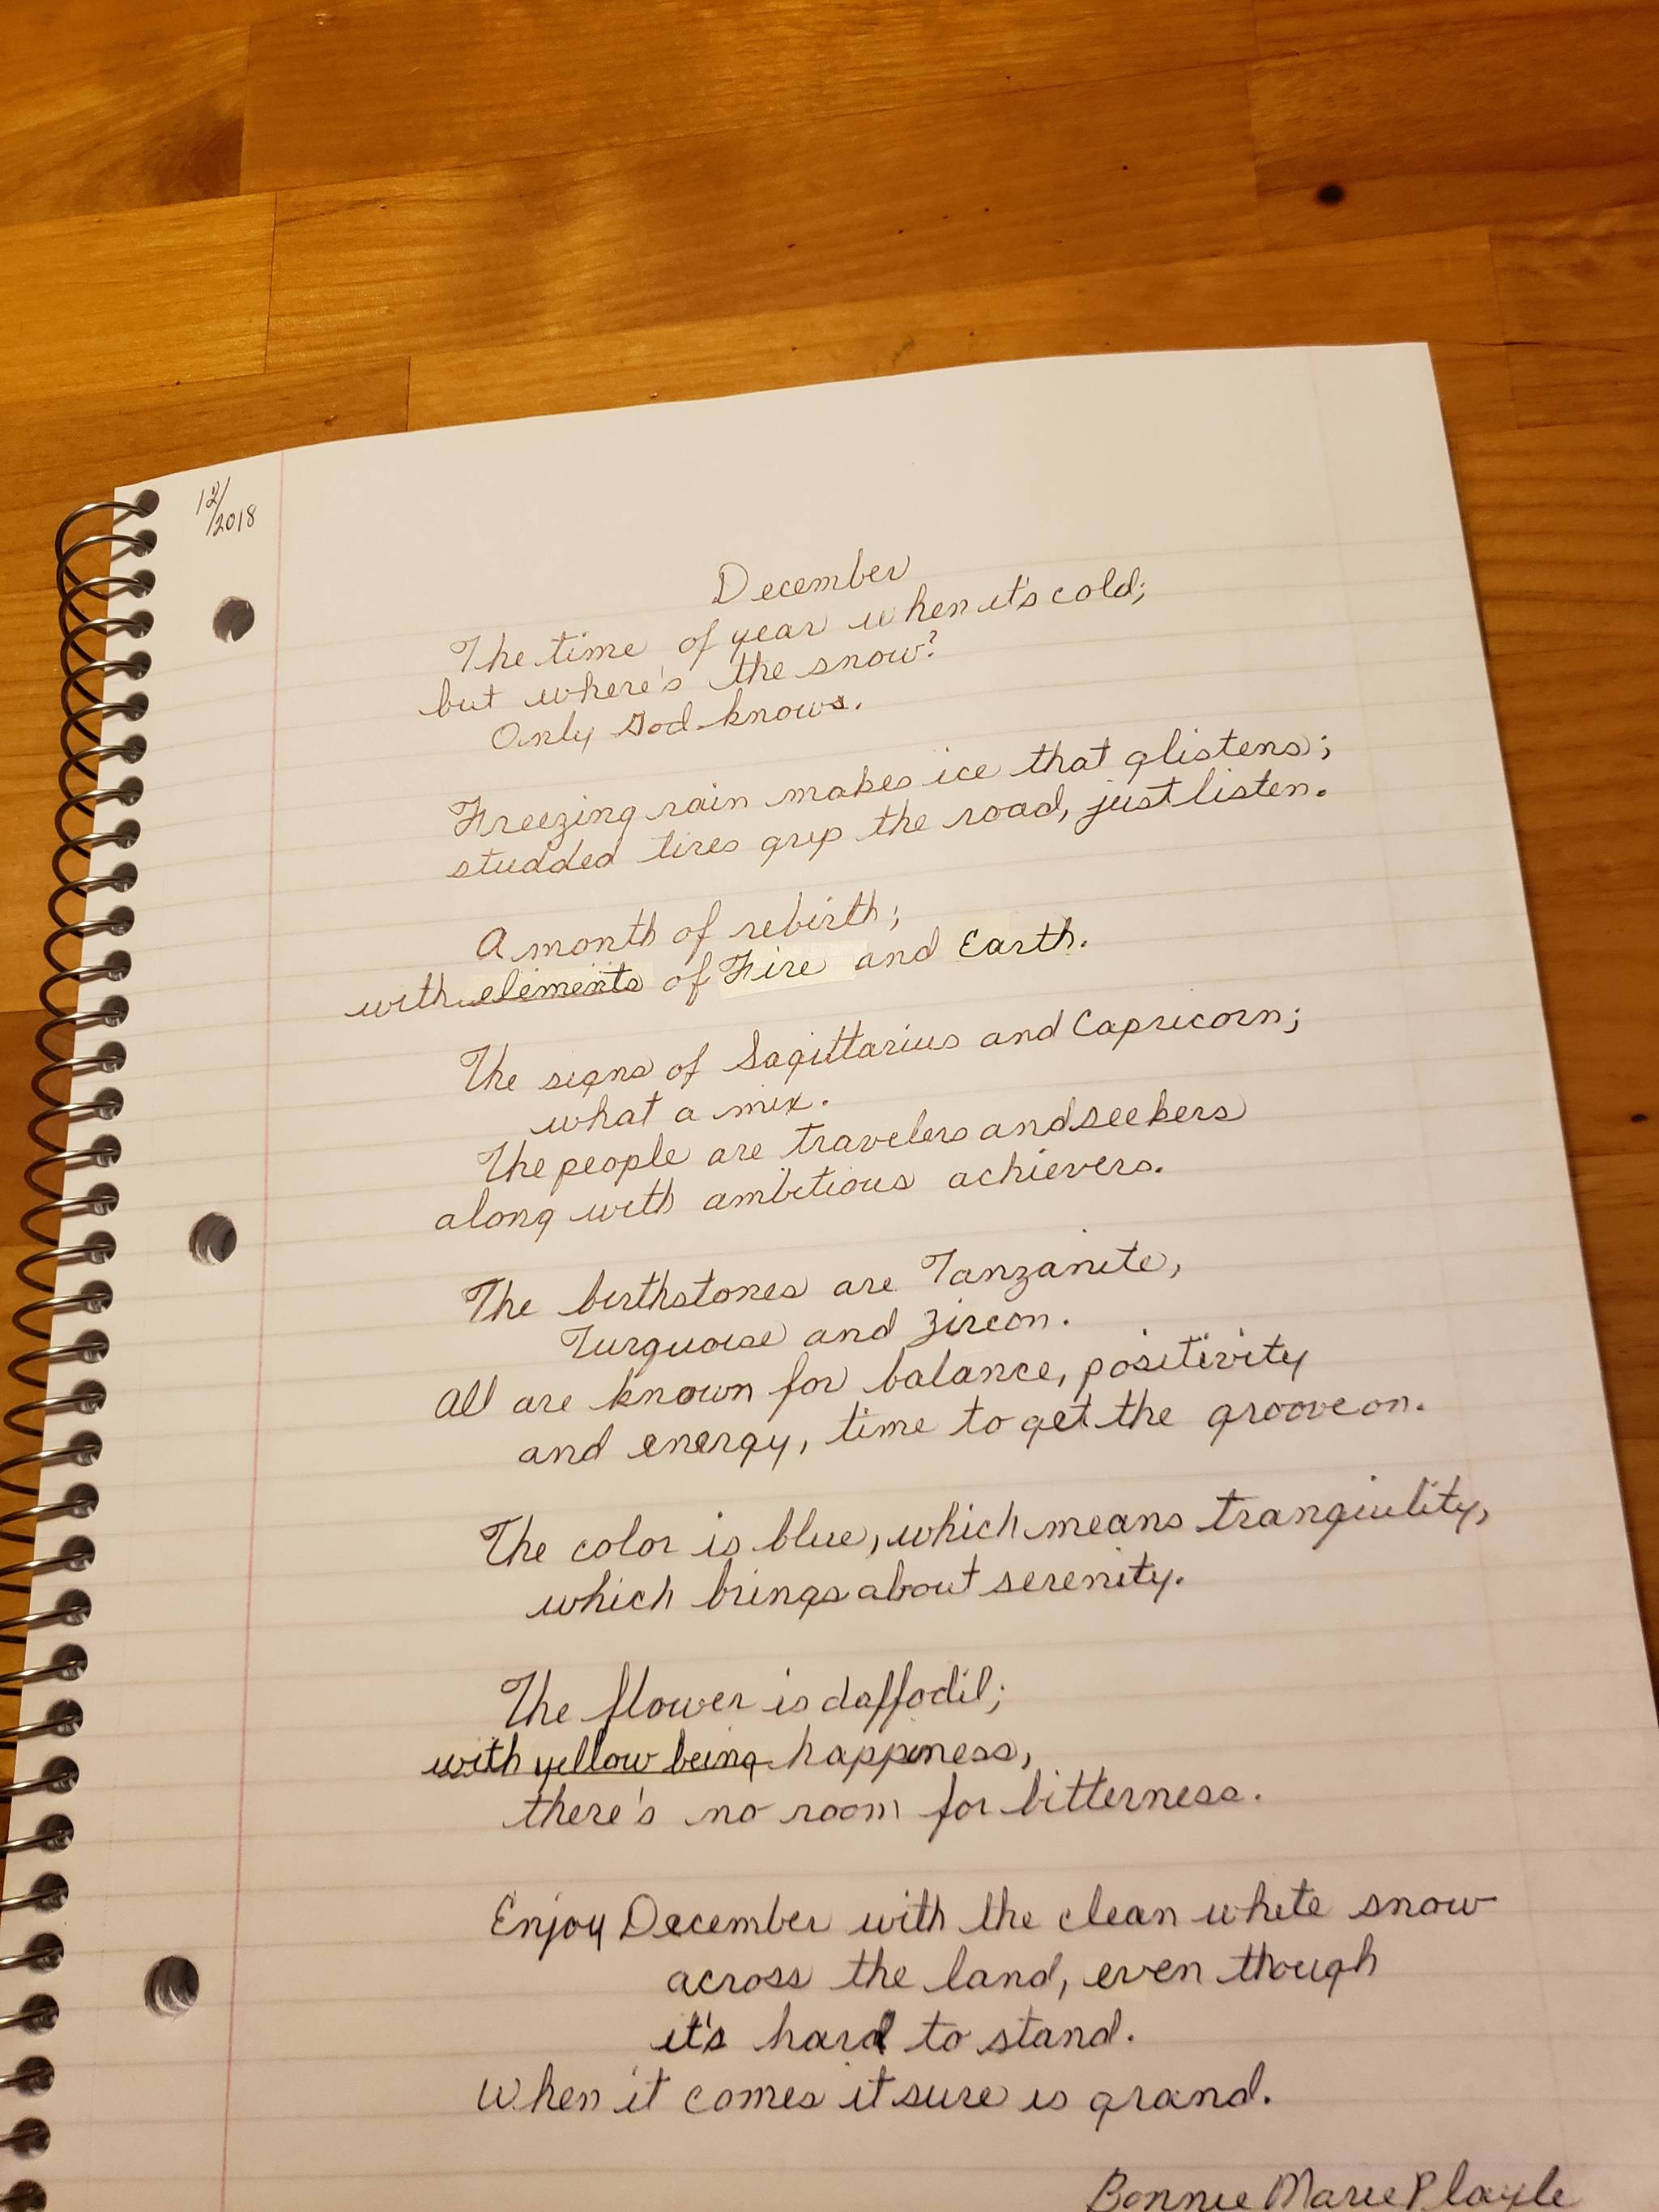 12/
/2018
December
The time of year when it's cold;
but where's the snow?
Only God knows.
Freezing rain makes ice that glistens;
studded tires grip the road, just listen.
A month of rebirth;
with elements of Fire and Earth.
The signs of Sagittarius and Capricorn;
what a mix.
The people are travelers and seekers
along with ambitious achievers.
The birthstones are Tanzanite,
Turquoise and Zircon.
All are known for balance, positivity
and energy, time to get the groove on.
The color is blue, which means tranquility,
which brings about serenity.
The flower is daffodil;
with yellow being happiness,
there's no room for bitterness.
Enjoy December with the clean white snow
across the land, even though
it's hard to stand.
When it comes it sure is grand.
Bonnie Marie Playle